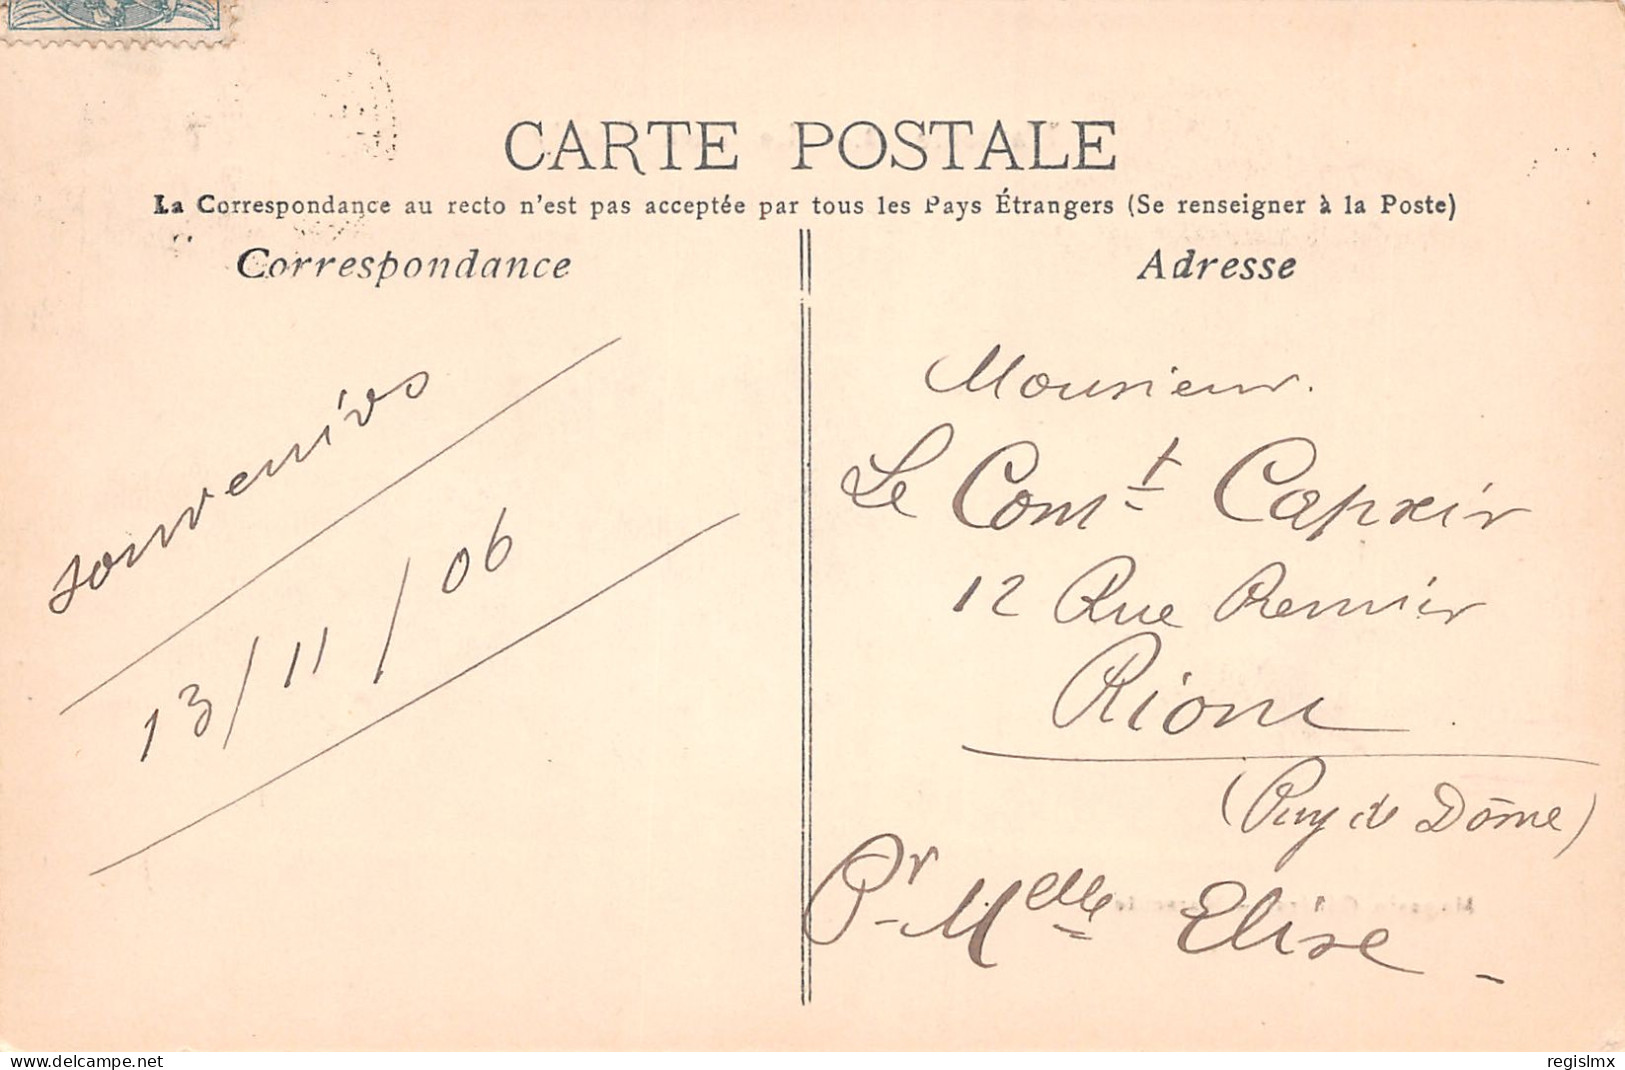 CARTE POSTALE
La Correspondance au recto n'est pas acceptée par tous les Pays Étrangers (Se renseigner à la Poste)
Correspondance
souvenirs
13/11/06
Adresse
Monsieur.
Le Comt
12 Rue
Riom
(Puy de Dôme)
Pr Melle Elise -
website: delcampe.net
regislmx